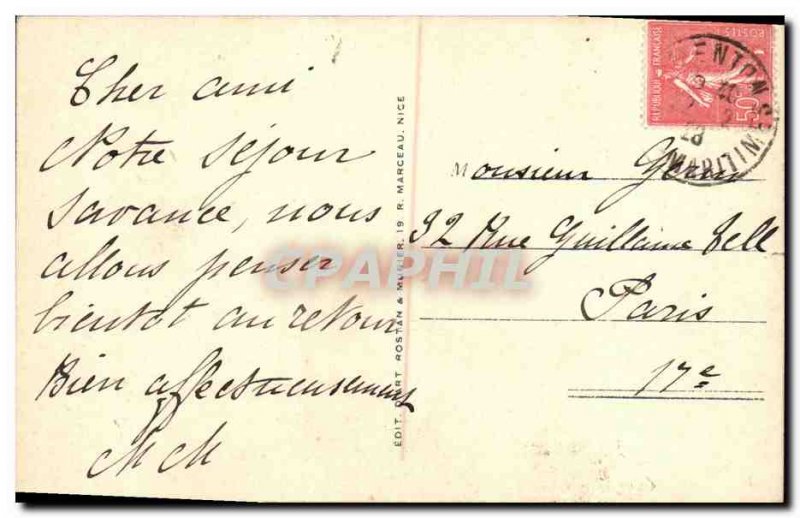 Cher ami
Notre séjour
s'avance, nous
allons penser
bientot au retour
Bien affectueusement
EDIT. D'ART ROSTAN & MUNIER, 19, R. MARCEAU, NICE
REPUBLIQUE FRANÇAISE
POSTES
50c
MENTON
28
MARITIM
Monsieur
92 Rue Guillaume Tell
Paris
17e
CPAPHIL